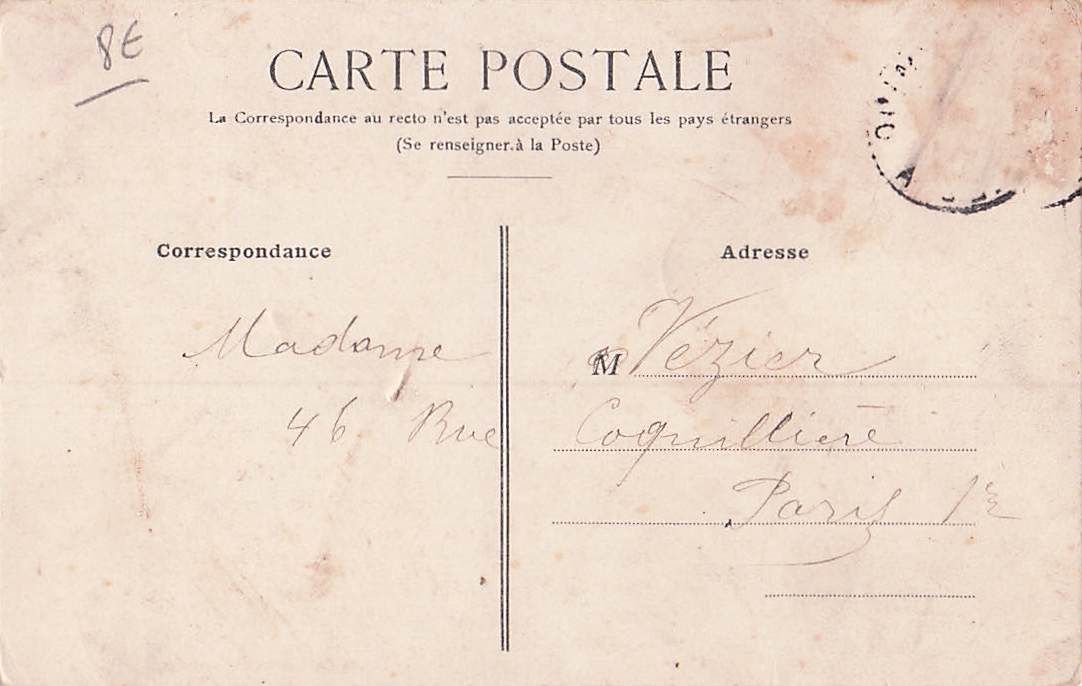 8€
CARTE POSTALE
La Correspondance au recto n'est pas acceptée par tous les pays étrangers
(Se renseigner à la Poste)
Correspondance
Adresse
Madame M Vézier
46 Rue Coquillière
Paris 1er